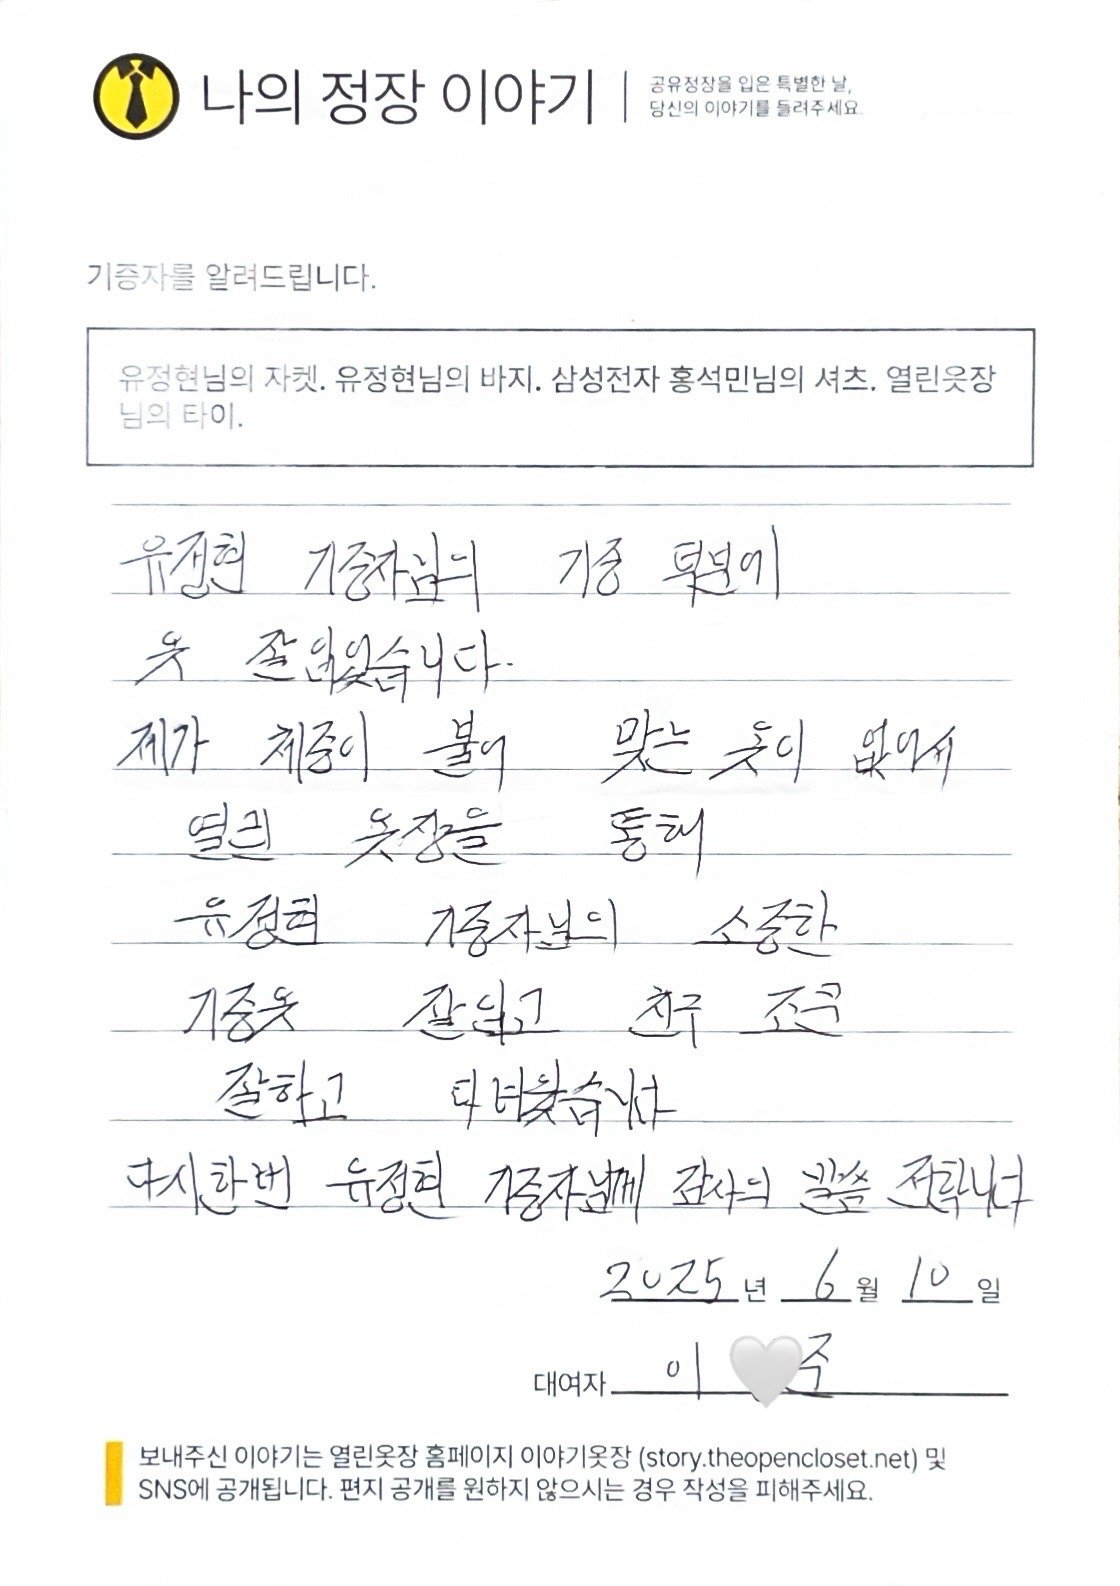 나의 정장 이야기
공유정장을 입은 특별한 날,
당신의 이야기를 들려주세요.
기증자를 알려드립니다.
유정현님의 자켓. 유정현님의 바지. 삼성전자 홍석민님의 셔츠. 열린옷장
님의 타이.
유정현 기증자님의 기증 덕분에
옷 잘 입었습니다.
제가 체중이 불어 맞는 옷이 없어서
열린 옷장을 통해
유정현 기증자님의 소중한
기증옷 잘 입고 친구 조문
잘하고 다녀왔습니다
다시한번 유정현 기증자님께 감사의 말씀 전합니다
2025년 6월 10일
대여자 이 주
보내주신 이야기는 열린옷장 홈페이지 이야기옷장 (story.theopencloset.net) 및
SNS에 공개됩니다. 편지 공개를 원하지 않으시는 경우 작성을 피해주세요.